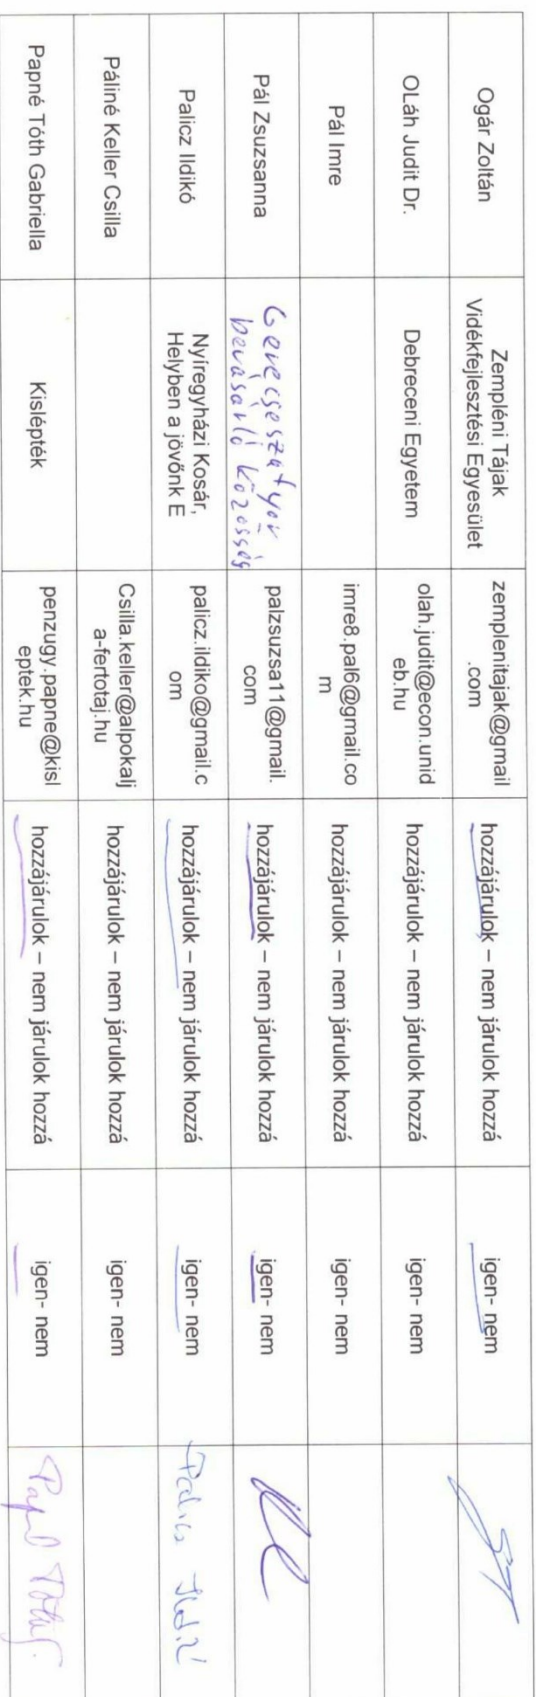 Ogár Zoltán
Zempléni Tájak
Vidékfejlesztési Egyesület
zemplenitajak@gmail
.com
hozzájárulok – nem járulok hozzá
igen- nem
OLáh Judit Dr.
Debreceni Egyetem
olah.judit@econ.unid
eb.hu
hozzájárulok – nem járulok hozzá
igen- nem
Pál Imre
imre8.pal6@gmail.co
m
hozzájárulok – nem járulok hozzá
igen- nem
Pál Zsuzsanna
bevásárló közösség
palzsuzsa11@gmail.
com
hozzájárulok – nem járulok hozzá
igen- nem
Palicz Ildikó
Nyíregyházi Kosár,
Helyben a jövőnk E
palicz.ildiko@gmail.c
om
hozzájárulok – nem járulok hozzá
igen- nem
Palicz Ildikó
Páliné Keller Csilla
Csilla.keller@alpokalj
a-fertotaj.hu
hozzájárulok – nem járulok hozzá
igen- nem
Papné Tóth Gabriella
Kislépték
penzugy.papne@kisl
eptek.hu
hozzájárulok – nem járulok hozzá
igen- nem